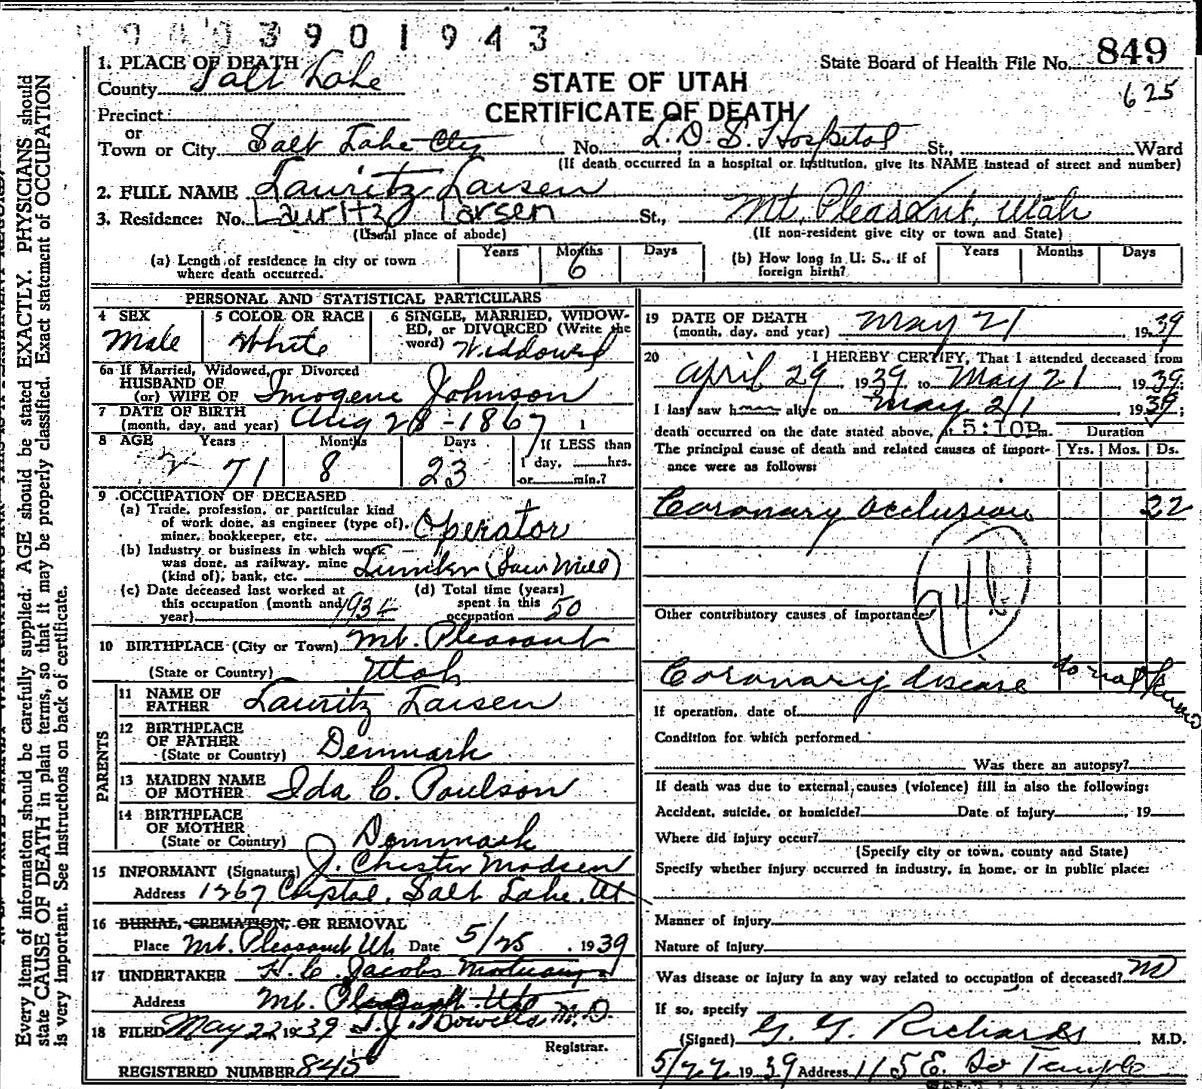 3901943
849
625
State Board of Health File No.
STATE OF UTAH
CERTIFICATE OF DEATH
1. PLACE OF DEATH
County Salt Lake
Precinct
or
Town or City Salt Lake City No. L.D.S. Hospital St., Ward
(If death occurred in a hospital or institution, give its NAME instead of street and number)
2. FULL NAME Lauritz Larsen
3. Residence: No. Lauritz Larsen St., Mt. Pleasant, Utah
(Usual place of abode) (If non-resident give city or town and State)
(a) Length of residence in city or town where death occurred. Years Months 6 Days
(b) How long in U. S., if of foreign birth? Years Months Days
PERSONAL AND STATISTICAL PARTICULARS
4 SEX Male
5 COLOR OR RACE White
6 SINGLE, MARRIED, WIDOWED, or DIVORCED (Write the word) Widdowed
6a If Married, Widowed, or Divorced
HUSBAND OF
(or) WIFE OF Imogene Johnson
7 DATE OF BIRTH
(month, day, and year) Aug 28-1867
8 AGE Years 71 Months 8 Days 23
If LESS than
1 day, hrs.
or min.?
9 OCCUPATION OF DECEASED
(a) Trade, profession, or particular kind
of work done, as engineer (type of),
miner, bookkeeper, etc. Operator
(b) Industry or business in which work
was done, as railway, mine
(kind of), bank, etc. Lumber (Saw Mill)
(c) Date deceased last worked at
this occupation (month and
year) 1934
(d) Total time (years)
spent in this
occupation 50
10 BIRTHPLACE (City or Town) Mt. Pleasant
(State or Country) Utah
PARENTS
11 NAME OF
FATHER Lauritz Larsen
12 BIRTHPLACE
OF FATHER
(State or Country) Denmark
13 MAIDEN NAME
OF MOTHER Ida C. Poulson
14 BIRTHPLACE
OF MOTHER
(State or Country) Denmark
15 INFORMANT (Signature) J. Chester Madsen
Address 1267 Crystal, Salt Lake, Ut
16 BURIAL, CREMATION, OR REMOVAL
Place Mt. Pleasant Ut. Date 5/25, 1939
17 UNDERTAKER H. C. Jacobs Mortuary
Address Mt. Pleasant Utah
18 FILED May 22 1939 M.D.
Registrar.
REGISTERED NUMBER 845
19 DATE OF DEATH
(month, day, and year) May 21 1939
20 I HEREBY CERTIFY, That I attended deceased from
April 29, 1939 to May 21, 1939;
I last saw h alive on May 21, 1939;
death occurred on the date stated above, 5:10P m.
The principal cause of death and related causes of importance were as follows:
Duration
Yrs. Mos. Ds.
Coronary occlusion 22
94b
Other contributory causes of importance
Coronary disease do not know
If operation, date of
Condition for which performed
Was there an autopsy?
If death was due to external causes (violence) fill in also the following:
Accident, suicide, or homicide? Date of injury , 19
Where did injury occur?
(Specify city or town, county and State)
Specify whether injury occurred in industry, in home, or in public place:
Manner of injury
Nature of injury
Was disease or injury in any way related to occupation of deceased? no
If so, specify
(Signed) G. G. Richards M.D.
5/22 1939 Address 115 E. So Temple
Every item of information should be carefully supplied. AGE should be stated EXACTLY. PHYSICIANS should
state CAUSE OF DEATH in plain terms, so that it may be properly classified. Exact statement of OCCUPATION
is very important. See instructions on back of certificate.